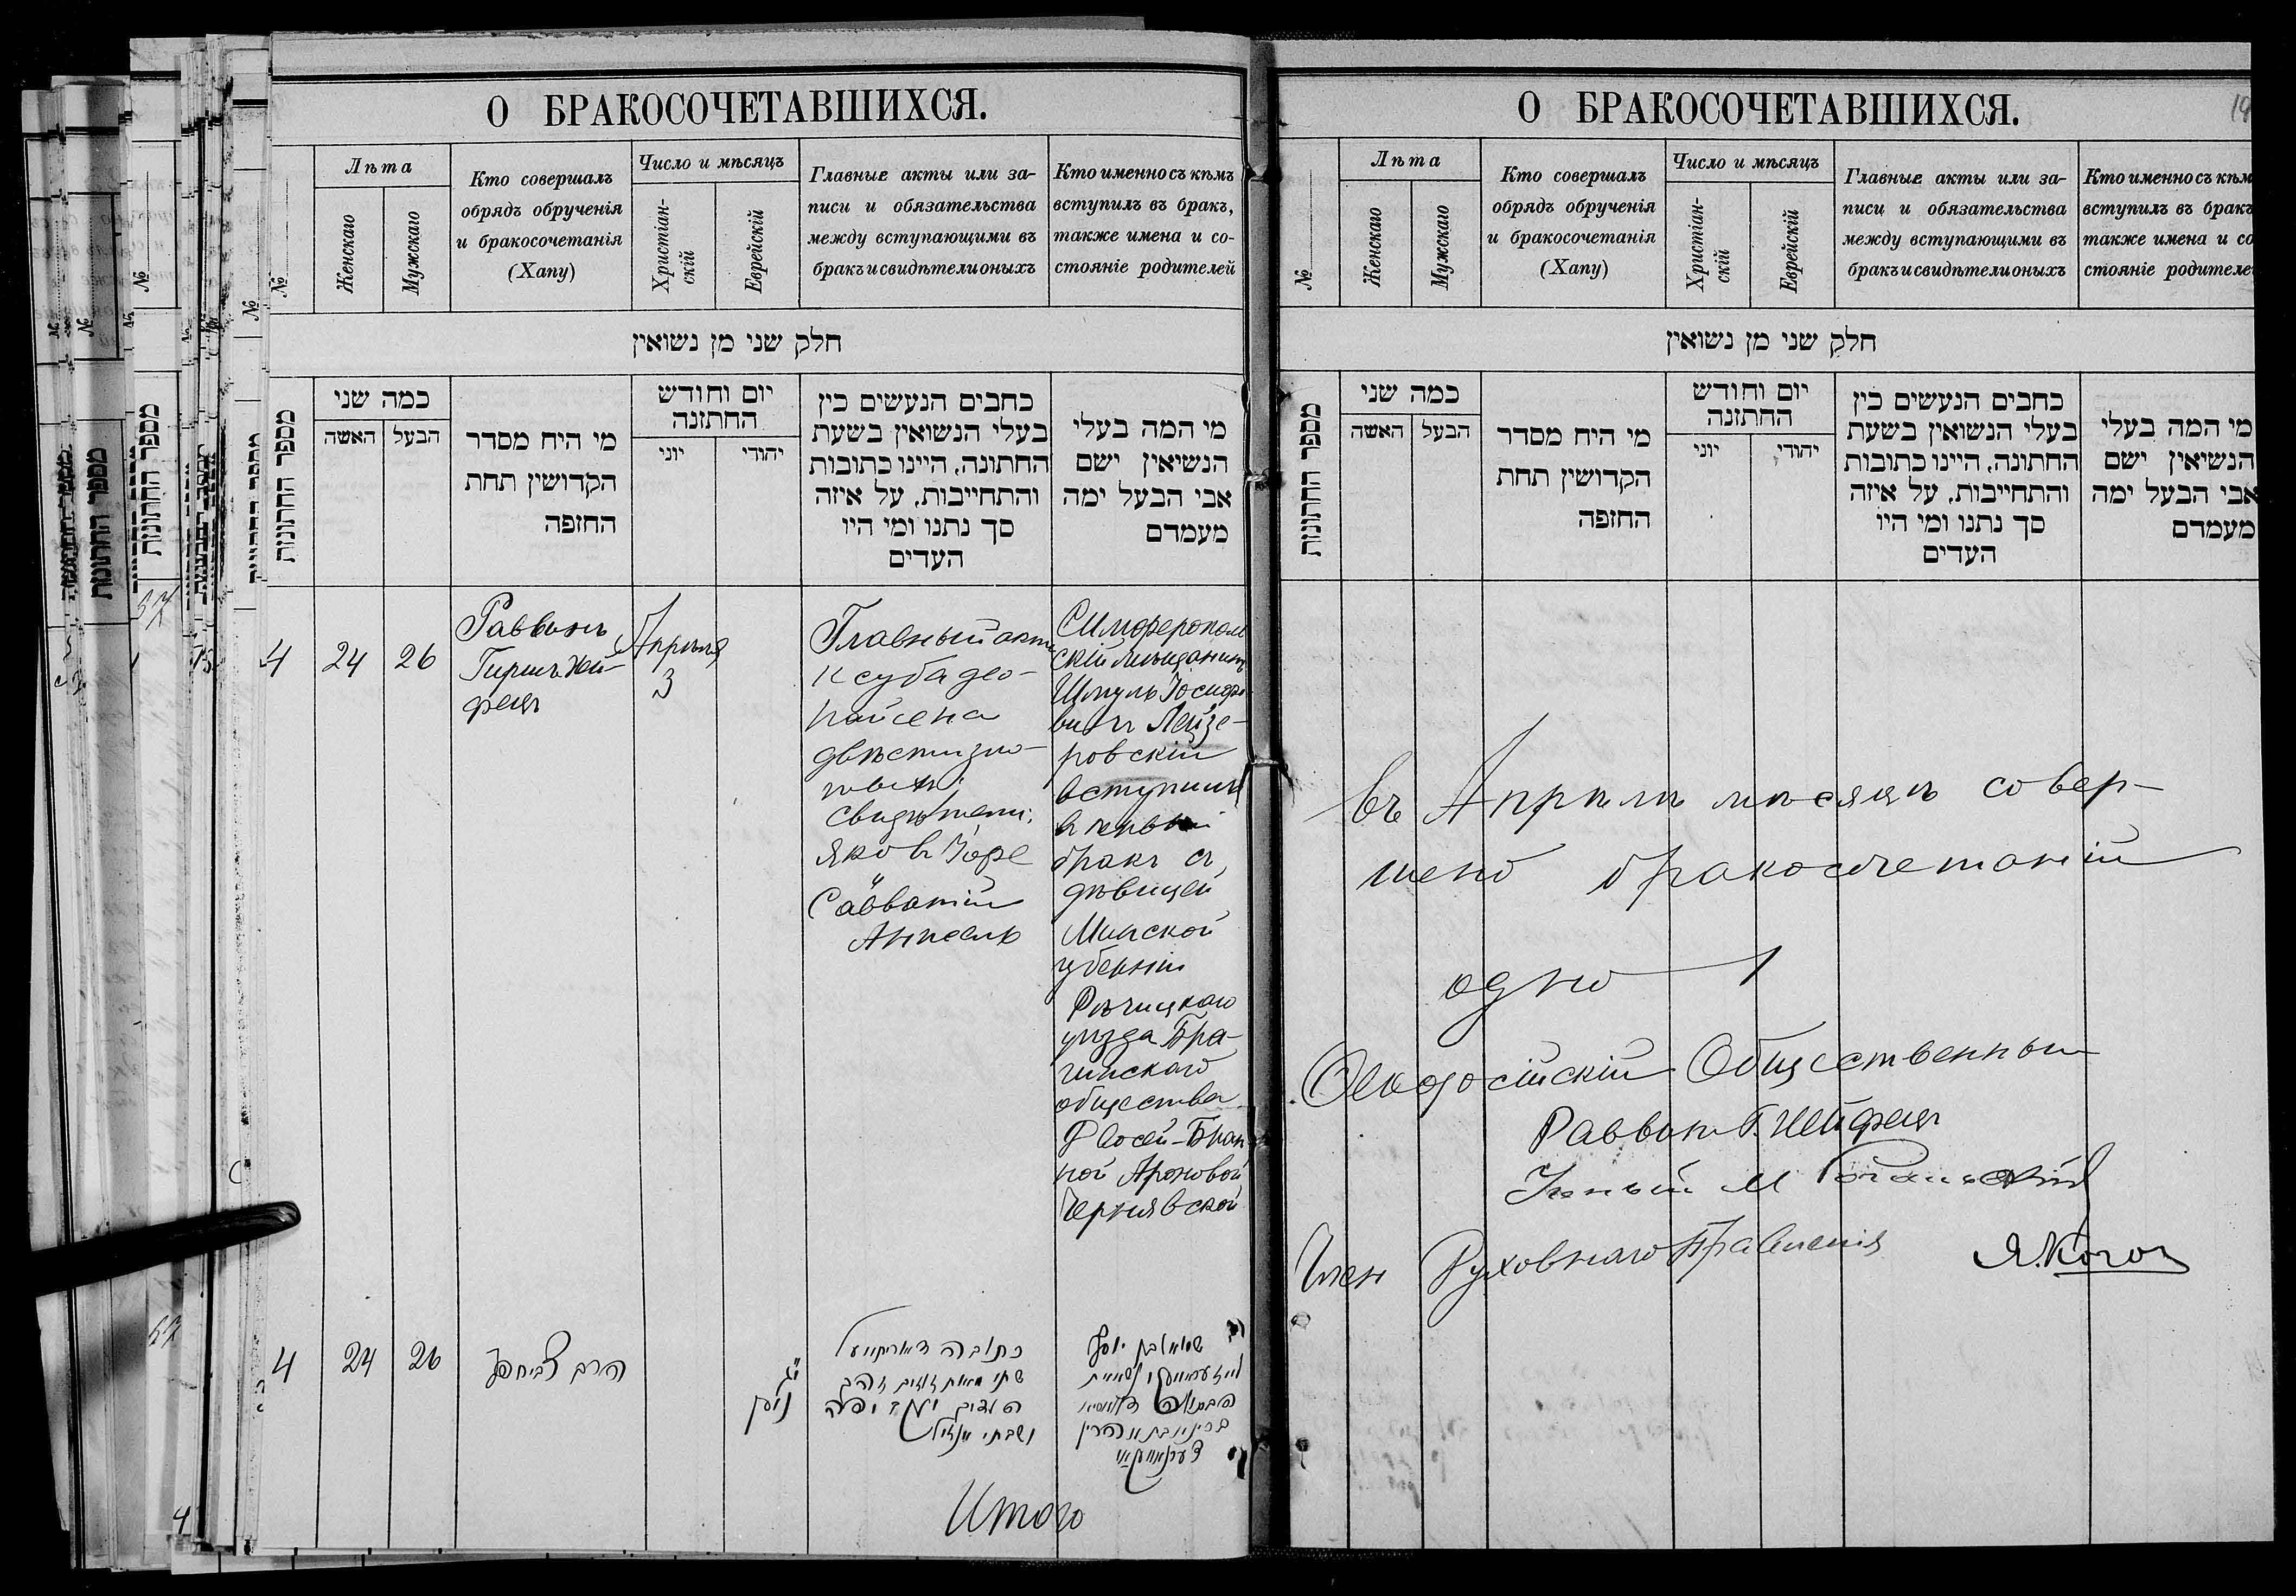 О БРАКОСОЧЕТАВШИХСЯ.
№
Лѣта
Женскаго
Мужскаго
Кто совершалъ
обрядъ обрученія
и бракосочетанія
(Хапу)
Число и мѣсяцъ
Христіан-
скій
Еврейскій
Главные акты или за-
писи и обязательства
между вступающими въ
бракъ и свидѣтели оныхъ
Кто именно съ кѣмъ
вступилъ въ бракъ,
также имена и со-
стояніе родителей
חלק שני מן נשואין
מספר החתונות
כמה שני
האשה
הבעל
מי היח מסדר
הקדושין תחת
החזפה
יום וחודש
החתזנה
יוני
יהודי
כחבים הנעשים כין
בעלי הנשואין בשעת
החתונה. היינו כתובות
והתחייבות. על איזה
סך נתנו ומי היו
העדים
מי המה בעלי
הנשיאין ישם
אבי הבעל ימה
מעמדם
4
24
26
Раввинъ
Гиршъ Хей-
фецъ
Апрѣля
3
Главный актъ
двѣсти зло-
тыхъ;
свидѣтели:
Яковъ Іофе
и
Савватій
Симферополь
скій мѣщанинъ
Шмуль Іосифо
вичъ Лейзе-
ровскій
вступилъ
въ первый
бракъ съ
дѣвицей
Минской
губерніи
Рѣчицкаго
уѣзда Бра-
гинскаго
общества
ной Ароновой
Чернявской
4
24
26
הרב
י״ג
ניסן
כתובה
שתי מאות זוזים
העדים יעקב יפה
ושבתי
שמואל בן יוסף
Итого
О БРАКОСОЧЕТАВШИХСЯ.
№
Лѣта
Женскаго
Мужскаго
Кто совершалъ
обрядъ обрученія
и бракосочетанія
(Хапу)
Число и мѣсяцъ
Христіан-
скій
Еврейскій
Главные акты или за-
писи и обязательства
между вступающими въ
бракъ и свидѣтели оныхъ
Кто именно съ кѣм
вступилъ въ бракъ
также имена и со
стояніе родителе
חלק שני מן נשואין
מספר החתונות
כמה שני
האשה
הבעל
מי היח מסדר
הקדושין תחת
החזפה
יום וחודש
החתזנה
יוני
יהודי
כחבים הנעשים כין
בעלי הנשואין בשעת
החתונה. היינו כתובות
והתחייבות. על איזה
סך נתנו ומי היו
העדים
מי המה בעלי
הנשיאין ישם
אבי הבעל ימה
מעמדם
Въ Апрѣлѣ мѣсяцѣ совер-
шено бракосочетаній
одно 1
Ѳеодосійскій Общественный
Раввинъ Г. Хейфецъ
Ученый М
Член Духовнаго Правленія Я. Коган